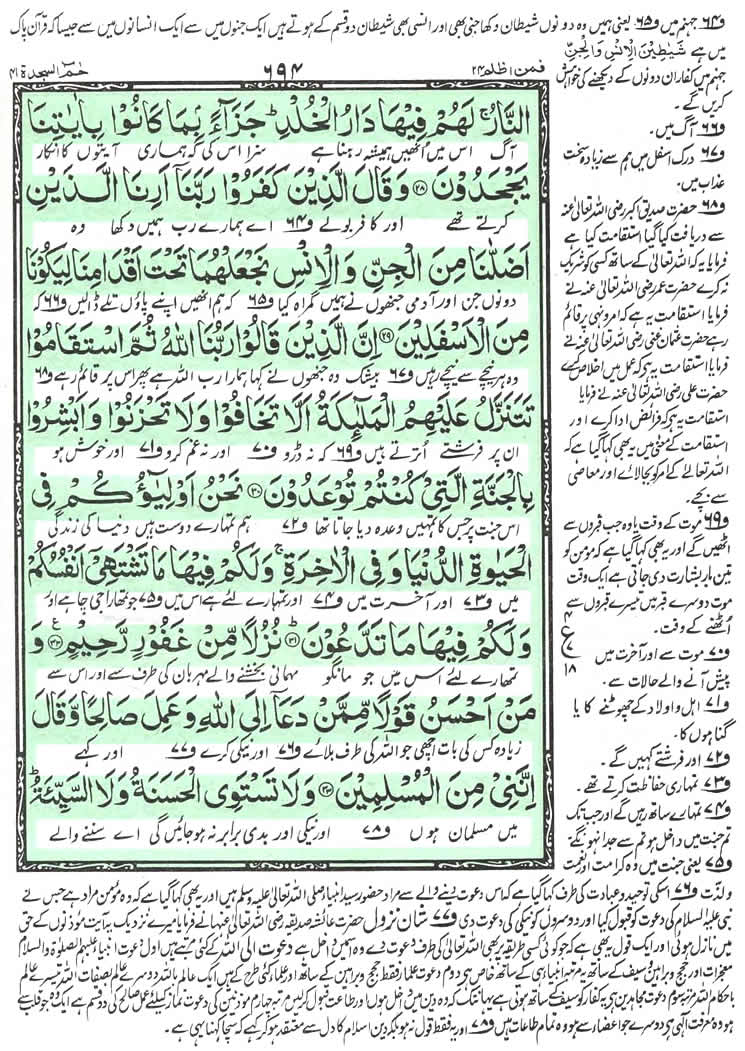 و۶۴ جہنم میں و۶۵ یعنی ہمیں وہ دونوں شیطان دکھا جنی بھی اور انسی بھی شیطان دو قسم کے ہوتے ہیں ایک جنوں میں سے ایک انسانوں میں سے جیسا کہ قرآن پاک
میں ہے شَيٰطِيْنَ الْاِنْسِ وَالْجِنِّ
جہنم میں کفار ان دونوں کے دیکھنے کی خواہش
کریں گے۔
فمن اظلم ۲۴
۶۹۴
حٰمٓ السجدة ۴۱
النَّارُ ۚ لَهُمْ فِيْهَا دَارُ الْخُلْدِ ؕ جَزَآءًۢ بِمَا كَانُوْا بِاٰيٰتِنَا
آگ اس میں انھیں ہمیشہ رہنا ہے سزا اس کی کہ ہماری آیتوں کا انکار
يَجْحَدُوْنَ ﴿۲۸﴾ وَقَالَ الَّذِيْنَ كَفَرُوْا رَبَّنَاۤ اَرِنَا الَّذَيْنِ
کرتے تھے اور کافر بولے و۶۴ اے ہمارے رب ہمیں دکھا وہ
اَضَلّٰنَا مِنَ الْجِنِّ وَالْاِنْسِ نَجْعَلْهُمَا تَحْتَ اَقْدَامِنَا لِيَكُوْنَا
دونوں جن اور آدمی جنھوں نے ہمیں گمراہ کیا و۶۵ کہ ہم انھیں اپنے پاؤں تلے ڈالیں و۶۶ کہ
مِنَ الْاَسْفَلِيْنَ ﴿۲۹﴾ اِنَّ الَّذِيْنَ قَالُوْا رَبُّنَا اللّٰهُ ثُمَّ اسْتَقَامُوْا
وہ ہر نیچے سے نیچے رہیں و۶۷ بیشک وہ جنھوں نے کہا ہمارا رب اللہ ہے پھر اس پر قائم رہے و۶۸
تَتَنَزَّلُ عَلَيْهِمُ الْمَلٰٓئِكَةُ اَلَّا تَخَافُوْا وَلَا تَحْزَنُوْا وَاَبْشِرُوْا
ان پر فرشتے اترتے ہیں و۶۹ کہ نہ ڈرو و۷۰ اور نہ غم کرو و۷۱ اور خوش ہو
بِالْجَنَّةِ الَّتِيْ كُنْتُمْ تُوْعَدُوْنَ ﴿۳۰﴾ نَحْنُ اَوْلِيٰٓؤُكُمْ فِى
اس جنت پر جس کا تمہیں وعدہ دیا جاتا تھا و۷۲ ہم تمہارے دوست ہیں دنیا کی زندگی
الْحَيٰوةِ الدُّنْيَا وَفِى الْاٰخِرَةِ ۚ وَلَكُمْ فِيْهَا مَا تَشْتَهِيْۤ اَنْفُسُكُمْ
میں و۷۳ اور آخرت میں و۷۴ اور تمہارے لئے ہے اس میں و۷۵ جو تمہارا جی چاہے اور
وَلَكُمْ فِيْهَا مَا تَدَّعُوْنَ ﴿۳۱﴾ نُزُلًا مِّنْ غَفُوْرٍ رَّحِيْمٍ ﴿۳۲﴾ وَ
تمھارے لئے اس میں جو مانگو مہمانی بخشنے والے مہربان کی طرف سے اور اس سے
مَنْ اَحْسَنُ قَوْلًا مِّمَّنْ دَعَاۤ اِلَى اللّٰهِ وَعَمِلَ صَالِحًا وَّقَالَ
زیادہ کس کی بات اچھی جو اللہ کی طرف بلائے و۷۶ اور نیکی کرے و۷۷ اور کہے
اِنَّنِيْ مِنَ الْمُسْلِمِيْنَ ﴿۳۳﴾ وَلَا تَسْتَوِى الْحَسَنَةُ وَلَا السَّيِّئَةُ ؕ
میں مسلمان ہوں و۷۸ اور نیکی اور بدی برابر نہ ہو جائیں گی اے سننے والے
و۶۶ آگ میں۔
و۶۷ درک اسفل میں ہم سے زیادہ سخت
عذاب میں۔
و۶۸ حضرت صدیق اکبر رضی اللہ تعالیٰ عنہ
سے دریافت کیا گیا استقامت کیا ہے
فرمایا یہ کہ اللہ تعالیٰ کے ساتھ کسی کو شریک
نہ کرے حضرت عمر رضی اللہ تعالیٰ عنہ نے
فرمایا استقامت یہ ہے کہ امر و نہی پر قائم
رہے حضرت عثمان غنی رضی اللہ تعالیٰ عنہ نے
فرمایا استقامت یہ ہے کہ عمل میں اخلاص کرے
حضرت علی رضی اللہ تعالیٰ عنہ نے فرمایا
استقامت یہ ہے کہ فرائض ادا کرے اور
استقامت کے معنی میں یہ بھی کہا گیا ہے کہ
اللہ تعالےٰ کے امر کو بجا لائے اور معاصی
سے بچے۔
و۶۹ موت کے وقت یا وہ جب قبروں سے
اٹھیں گے اور یہ بھی کہا گیا ہے کہ مومن کو
تین بار بشارت دی جاتی ہے ایک وقت
موت دوسرے قبر میں تیسرے قبروں سے
اُٹھنے کے وقت۔
۴
ع
۷
۱۸
و۷۰ موت سے اور آخرت میں
پیش آنے والے حالات سے۔
و۷۱ اہل و اولاد کے چھوٹنے کا یا
گناہوں کا۔
و۷۲ اور فرشتے کہیں گے۔
و۷۳ تمہاری حفاظت کرتے تھے۔
و۷۴ تمہارے ساتھ رہیں گے اور جب تک
تم جنت میں داخل ہو تم سے جدا نہ ہونگے
و۷۵ یعنی جنت میں وہ کرامت اور نعمت
و لذت و۷۶ اسکی توحید و عبادت کی طرف کہا گیا ہے کہ اس دعوت دینے والے سے مراد حضور سید انبیاء صلی اللہ تعالیٰ علیہ وسلم ہیں اور یہ بھی کہا گیا ہے کہ وہ مؤمن مراد ہے جس نے
نبی علیہ السلام کی دعوت کو قبول کیا اور دوسروں کو نیکی کی دعوت دی و۷۷ شان نزول حضرت عائشہ صدیقہ رضی اللہ تعالیٰ عنہا نے فرمایا میرے نزدیک یہ آیت مؤذنوں کے حق
میں نازل ہوئی اور ایک قول یہ بھی ہے کہ جو کوئی کسی طریقہ پر بھی اللہ تعالیٰ کی طرف دعوت دے وہ اس میں داخل ہے دعوت الی اللہ کے کئی مرتبے ہیں اول دعوت انبیا علیہم الصلوٰۃ والسلام
معجزات اور حجج و براہین و سیف کے ساتھ یہ مرتبہ انبیا ہی کے ساتھ خاص ہے دوم دعوت علما فقط حجج و براہین کے ساتھ اور علما کئی طرح کے ہیں ایک عالم باللہ دوسرے عالم بصفات اللہ تیسرے عالم
باحکام اللہ مرتبہ سوم دعوت مجاہدین ہے یہ کفار کو سیف کے ساتھ ہوتی ہے یہاں تک کہ وہ دین میں داخل ہوں اور طاعت قبول کریں مرتبہ چہارم مؤذنین کی دعوت نماز کیلئے عمل صالح کی دو قسم ہے ایک وہ جو قلب سے
ہو وہ معرفت الٰہی ہے دوسرے جو اعضا سے ہو وہ تمام طاعات ہیں و۷۸ اور یہ فقط قول نہ ہو بلکہ دین اسلام کا دل سے معتقد ہو کر کہے کہ سچا کہنا یہی ہے۔